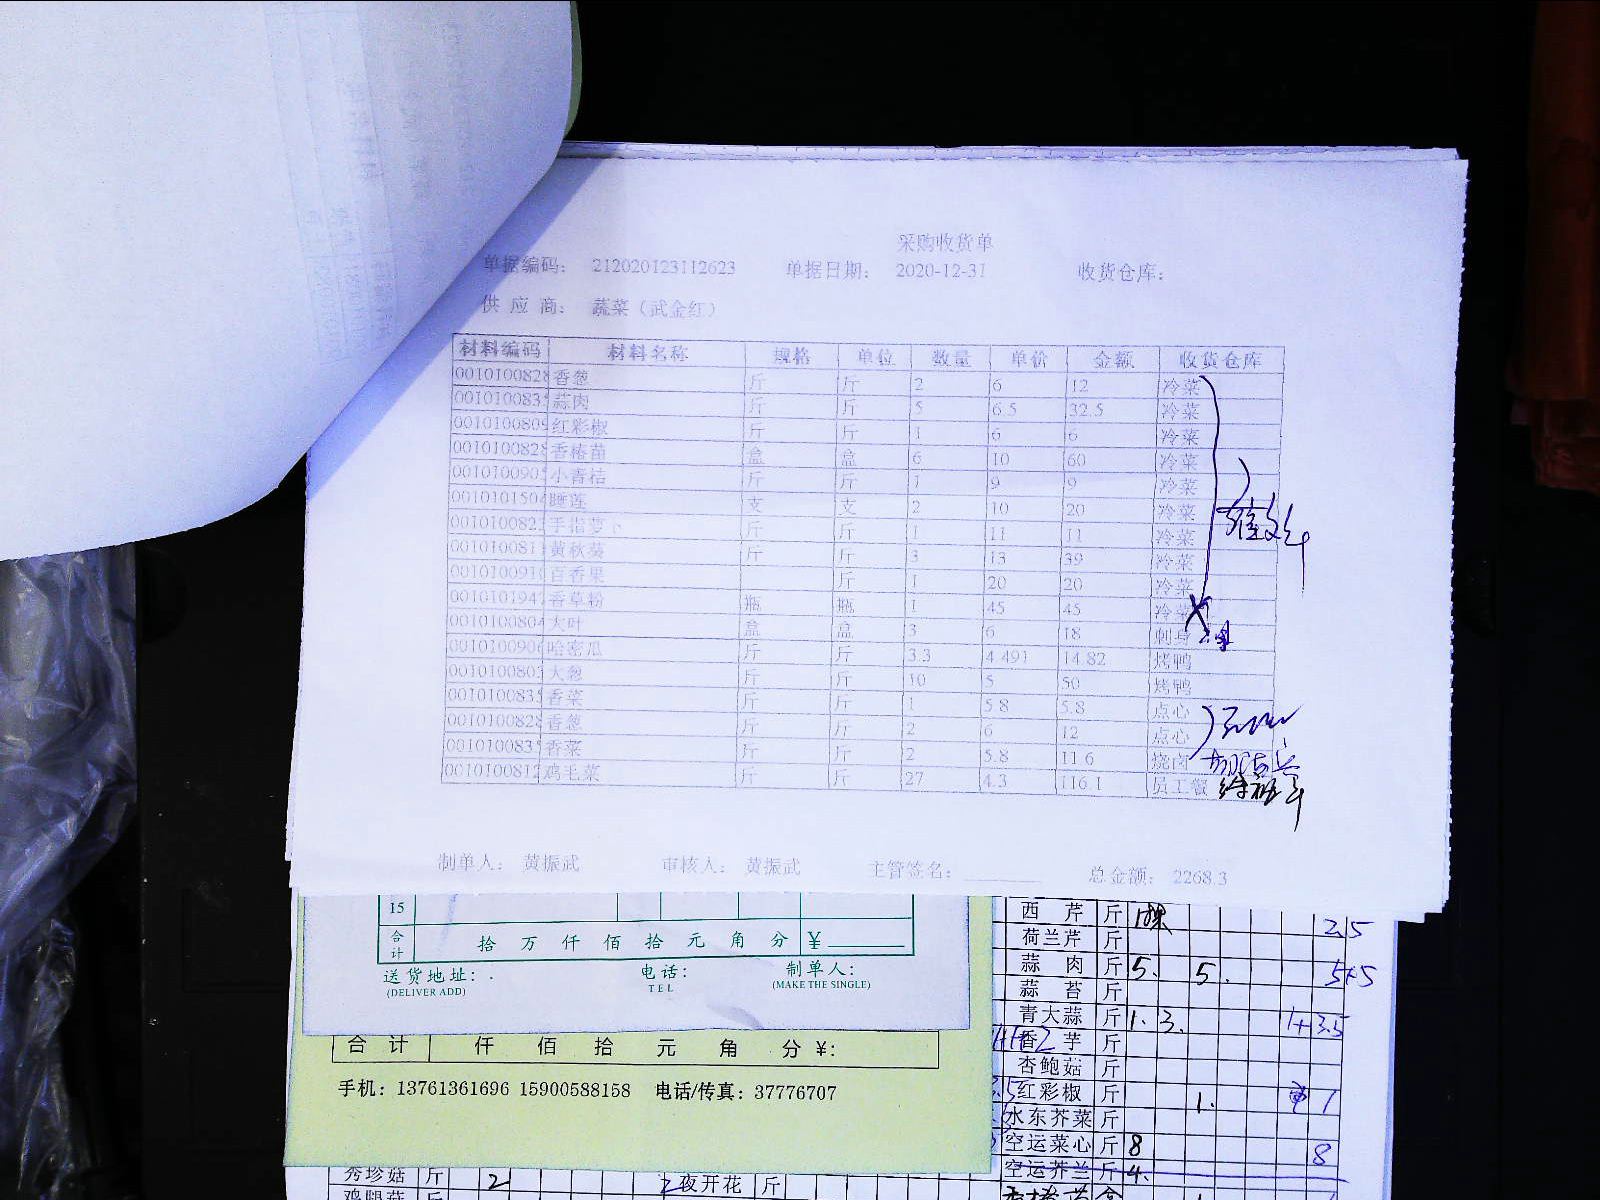 采购收货单
单据编码： 212020123112623 单据日期： 2020-12-31 收货仓库：
供 应 商： 蔬菜（武金红）
材料编码 材料名称 规格 单位 数量 单价 金额 收货仓库
0010100828 香葱 斤 斤 2 6 12 冷菜
001010083 蒜肉 斤 斤 5 6.5 32.5 冷菜
001010080 红彩椒 斤 斤 1 6 6 冷菜
001010082 香椿苗 盒 盒 6 10 60 冷菜
001010090 小青桔 斤 斤 1 9 9 冷菜
001010150 睡莲 支 支 2 10 20 冷菜
001010082 手指萝卜 斤 斤 1 11 11 冷菜
001010081 黄秋葵 斤 斤 3 13 39 冷菜
001010091 百香果 斤 1 20 20 冷菜
001010194 香草粉 瓶 瓶 1 45 45 冷菜
001010080 大叶 盒 盒 3 6 18 刺身
001010090 哈密瓜 斤 斤 3.3 4.491 14.82 烤鸭
001010080 大葱 斤 斤 10 5 50 烤鸭
001010083 香菜 斤 斤 1 5.8 5.8 点心
001010082 香葱 斤 斤 2 6 12 点心
001010083 香菜 斤 斤 2 5.8 11.6 烧卤
001010081 鸡毛菜 斤 斤 27 4.3 116.1 员工餐
制单人： 黄振武 审核人： 黄振武 主管签名： 总金额： 2268.3
15
合计 拾 万 仟 佰 拾 元 角 分 ¥
送货地址： 电话： 制单人：
(DELIVER ADD) TEL (MAKE THE SINGLE)
合 计 仟 佰 拾 元 角 分 ¥:
手机：13761361696 15900588158 电话/传真：37776707
西 芹 斤 2.5
荷兰芹 斤
蒜 肉 斤 5. 5. 5+5
蒜 苔 斤
青大蒜 斤 1. 3. 1+3.5
香 芋 斤
杏鲍菇 斤
红彩椒 斤 1. 1
水东芥菜 斤
空运菜心 斤 8 8
空运芥兰 斤 4.
秀珍菇 斤 2 夜开花 斤
鸡腿菇